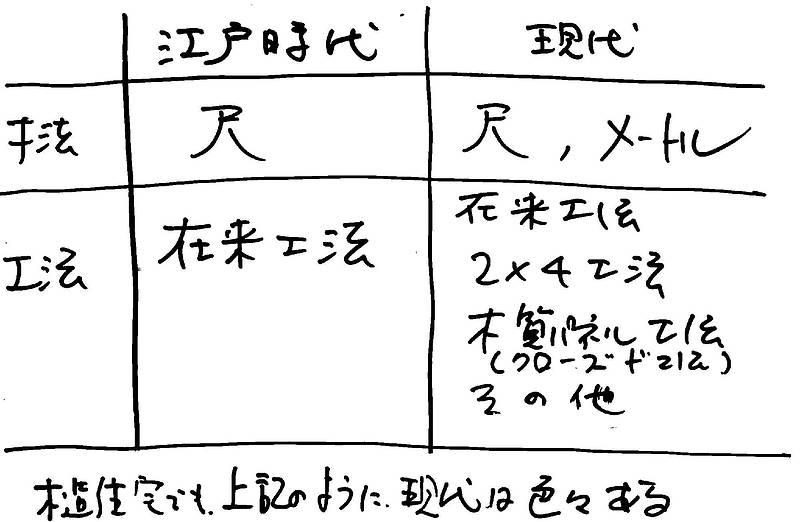 江戸時代 現代
寸法 尺 尺,メートル
工法 在来工法 在来工法
2×4工法
木質パネル工法
(クローズド工法)
その他
木造住宅でも、上記のように、現代は色々ある